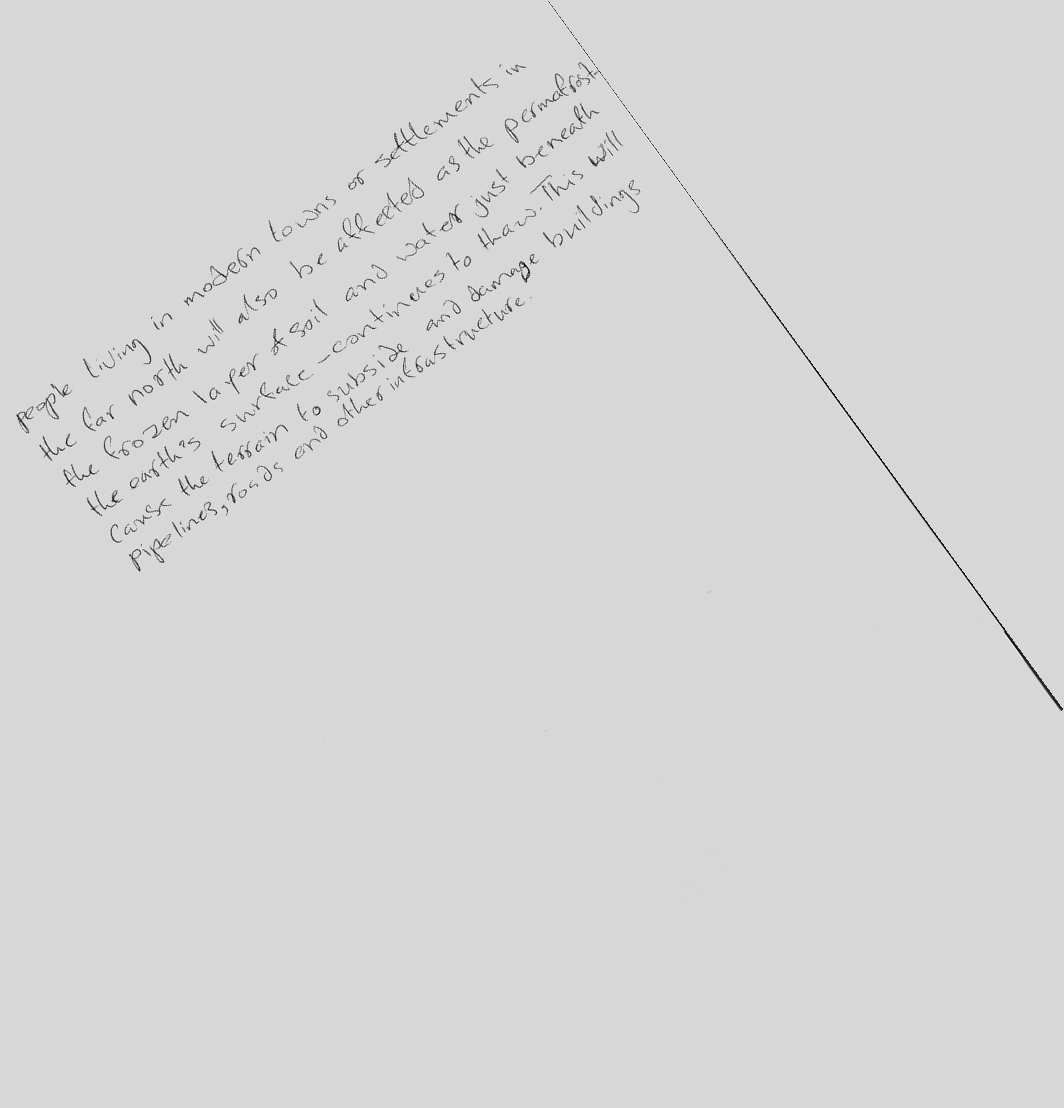 people living in modern towns or settlements in
the far north will also be affected as the permafrost-
the frozen layer of soil and water just beneath
the earth's surface - continues to thaw. This will
cause the terrain to subside and damage buildings
pipelines, roads and other infrastructure.